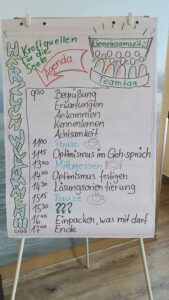 HERZLICH WILLKOMMEN!!!
Kraftquellen
für die
Seele
Gemeinsamkeits-
Teamtag
Agenda
9:30 Begrüßung
Erwartungen
Ankommen
Kennenlernen
Achtsamkeit
11:00 Pause
11:15 Optimismus im Gehspräch
13:00 Mittagessen
14:00 Optimismus festigen
14:30 Lösungsorientierung
15:15 Pause
15:30 ???
16:00 Einpacken, was mit darf
17:00 Ende